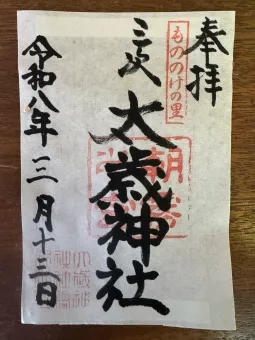 奉拝
もののけの里
三次
太歳神社
令和八年二月十三日